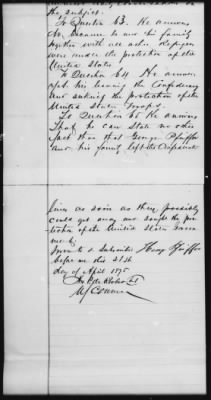 the subject.
To Question 63. He answers
No, because he and his family
together with all other refugees
were under the protection of the
United States
To Question 64 He answers
his leaving the Confederacy
and seeking the protection of the
United States Troops.
To Question 65 He answers
That he can State no other
fact than that George Pfeiffer
and his family left the Confederacy
lines as soon as they possibly
could get away and sought the pro-
tection of the United States Govern
ment.
Sworn to & Subscribed Henry Pfeiffer
before me this 21st
day of April 1875